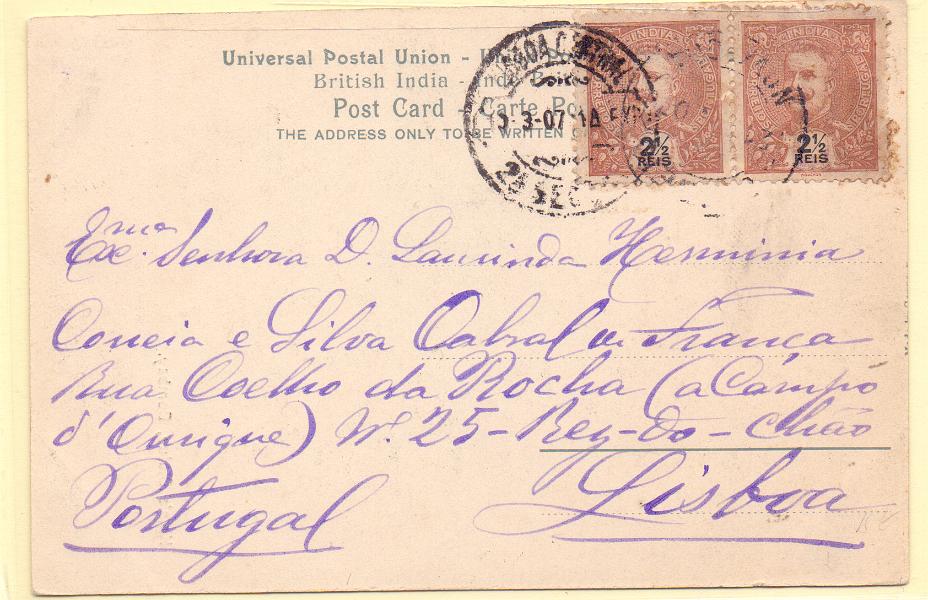 Universal Postal Union -
British India -
Post Card - Carte
THE ADDRESS ONLY TO BE WRITTEN
CENTRAL
3-07
2ª SEC
INDIA
INDIA
2½
REIS
2½
REIS
Exc.ma Senhora D. Laurinda Herminia
Correia e Silva Cabral de França
Rua Coelho da Rocha (a Campo
d'Ourique) Nº. 25 - Rez-do-Chão
Portugal
Lisboa